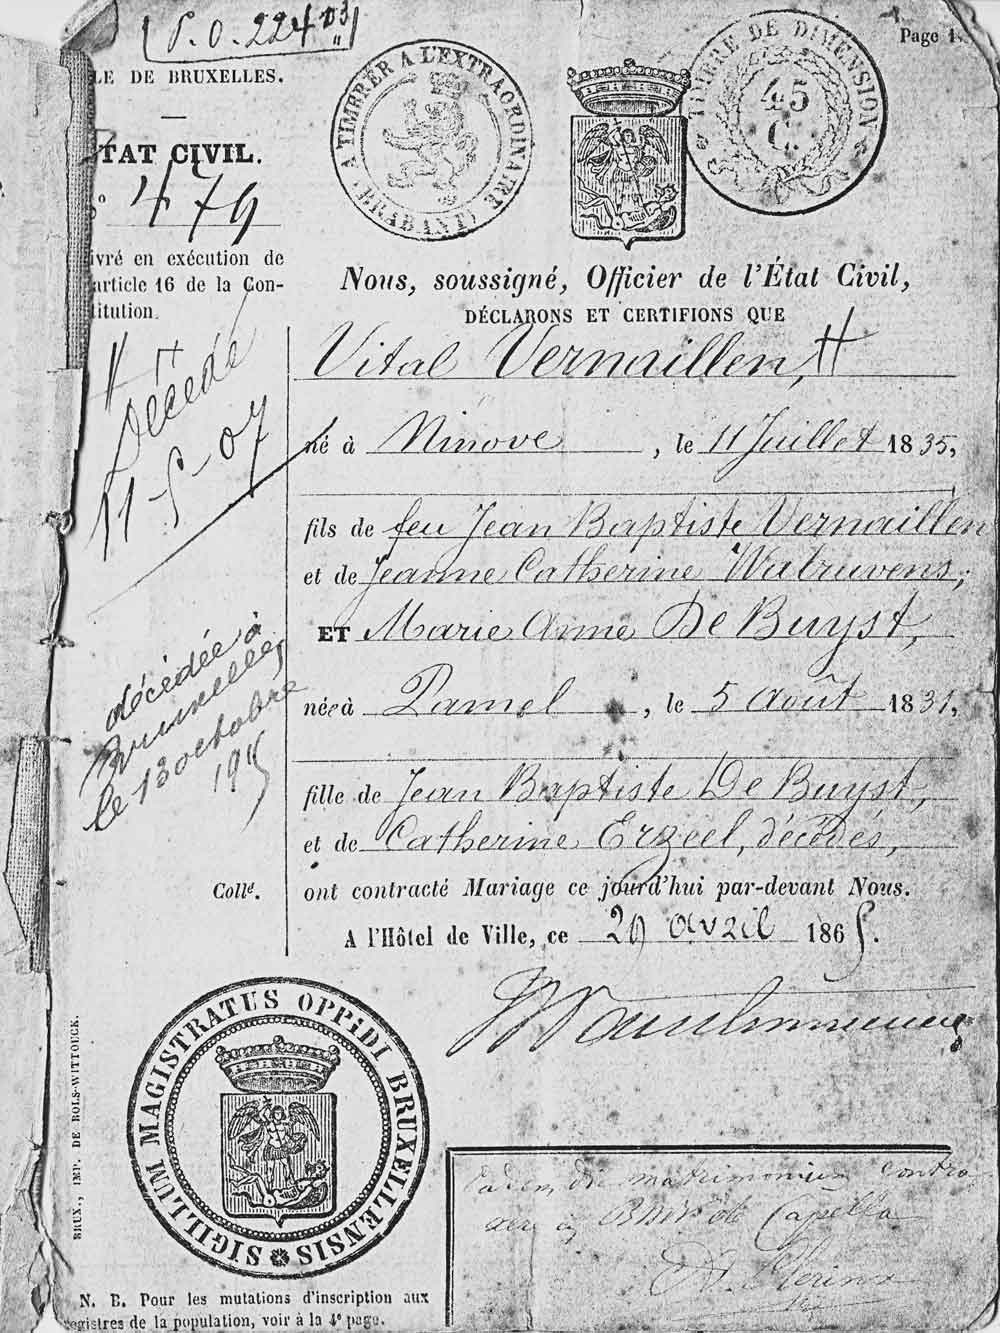 P. O. 22403
Page 1.
LE DE BRUXELLES.
TAT CIVIL.
o 479
ivré en exécution de
article 16 de la Con-
titution.
A TIMBRER A L'EXTRAORDINAIRE
(BRABANT)
TIMBRE DE DIMENSION
45
C.
Nous, soussigné, Officier de l'État Civil,
DÉCLARONS ET CERTIFIONS QUE
Vital Vernaillen,
né à Ninove, le 11 Juillet 1835,
fils de feu Jean Baptiste Vernaillen
et de Jeanne Catherine Walravens;
ET Marie Anne De Buyst,
née à Pamel, le 5 août 1831,
fille de Jean Baptiste De Buyst,
et de Catherine Erzeel, décédés,
ont contracté Mariage ce jourd'hui par-devant Nous.
A l'Hôtel de Ville, ce 29 avril 1865.
Décédé
11-5-07
décédée à
Bruxelles
le 13 octobre
1915
Collé.
SIGILLUM MAGISTRATUS OPPIDI BRUXELLENSIS
BRUX., IMP. DE BOLS-WITTOUCK.
eadem die matrimonium contra
Capella
N. B. Pour les mutations d'inscription aux
egistres de la population, voir à la 4e page.